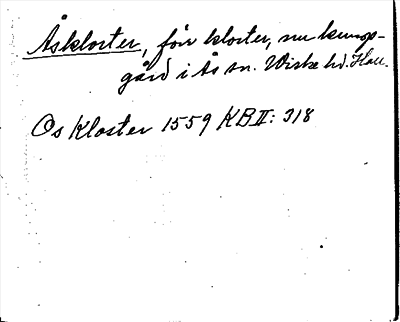 Åskloster, förr kloster, nu kungs-
gård i Ås sn. Viske hd. Hall.
Os Kloster 1559 KB II: 318